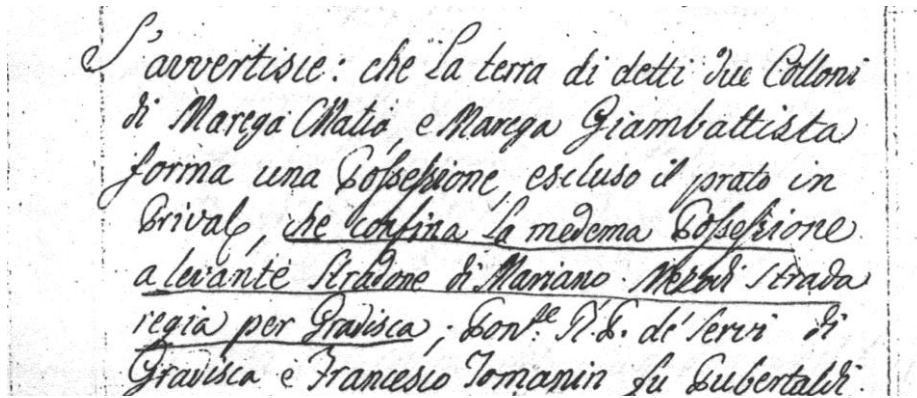 S'avvertisce: che La terra di detti due Colloni
di Marega Matiò, e Marega Giambattista
forma una Possessione, escluso il prato in
Prival, che confina La medema Possessione
a levante Stradone di Mariano. Mezodì Strada
regia per Gradisca; Pon.te R.R. P. de' Servi di
Gradisca e Francesco Tomanin fu Pubertaldi.